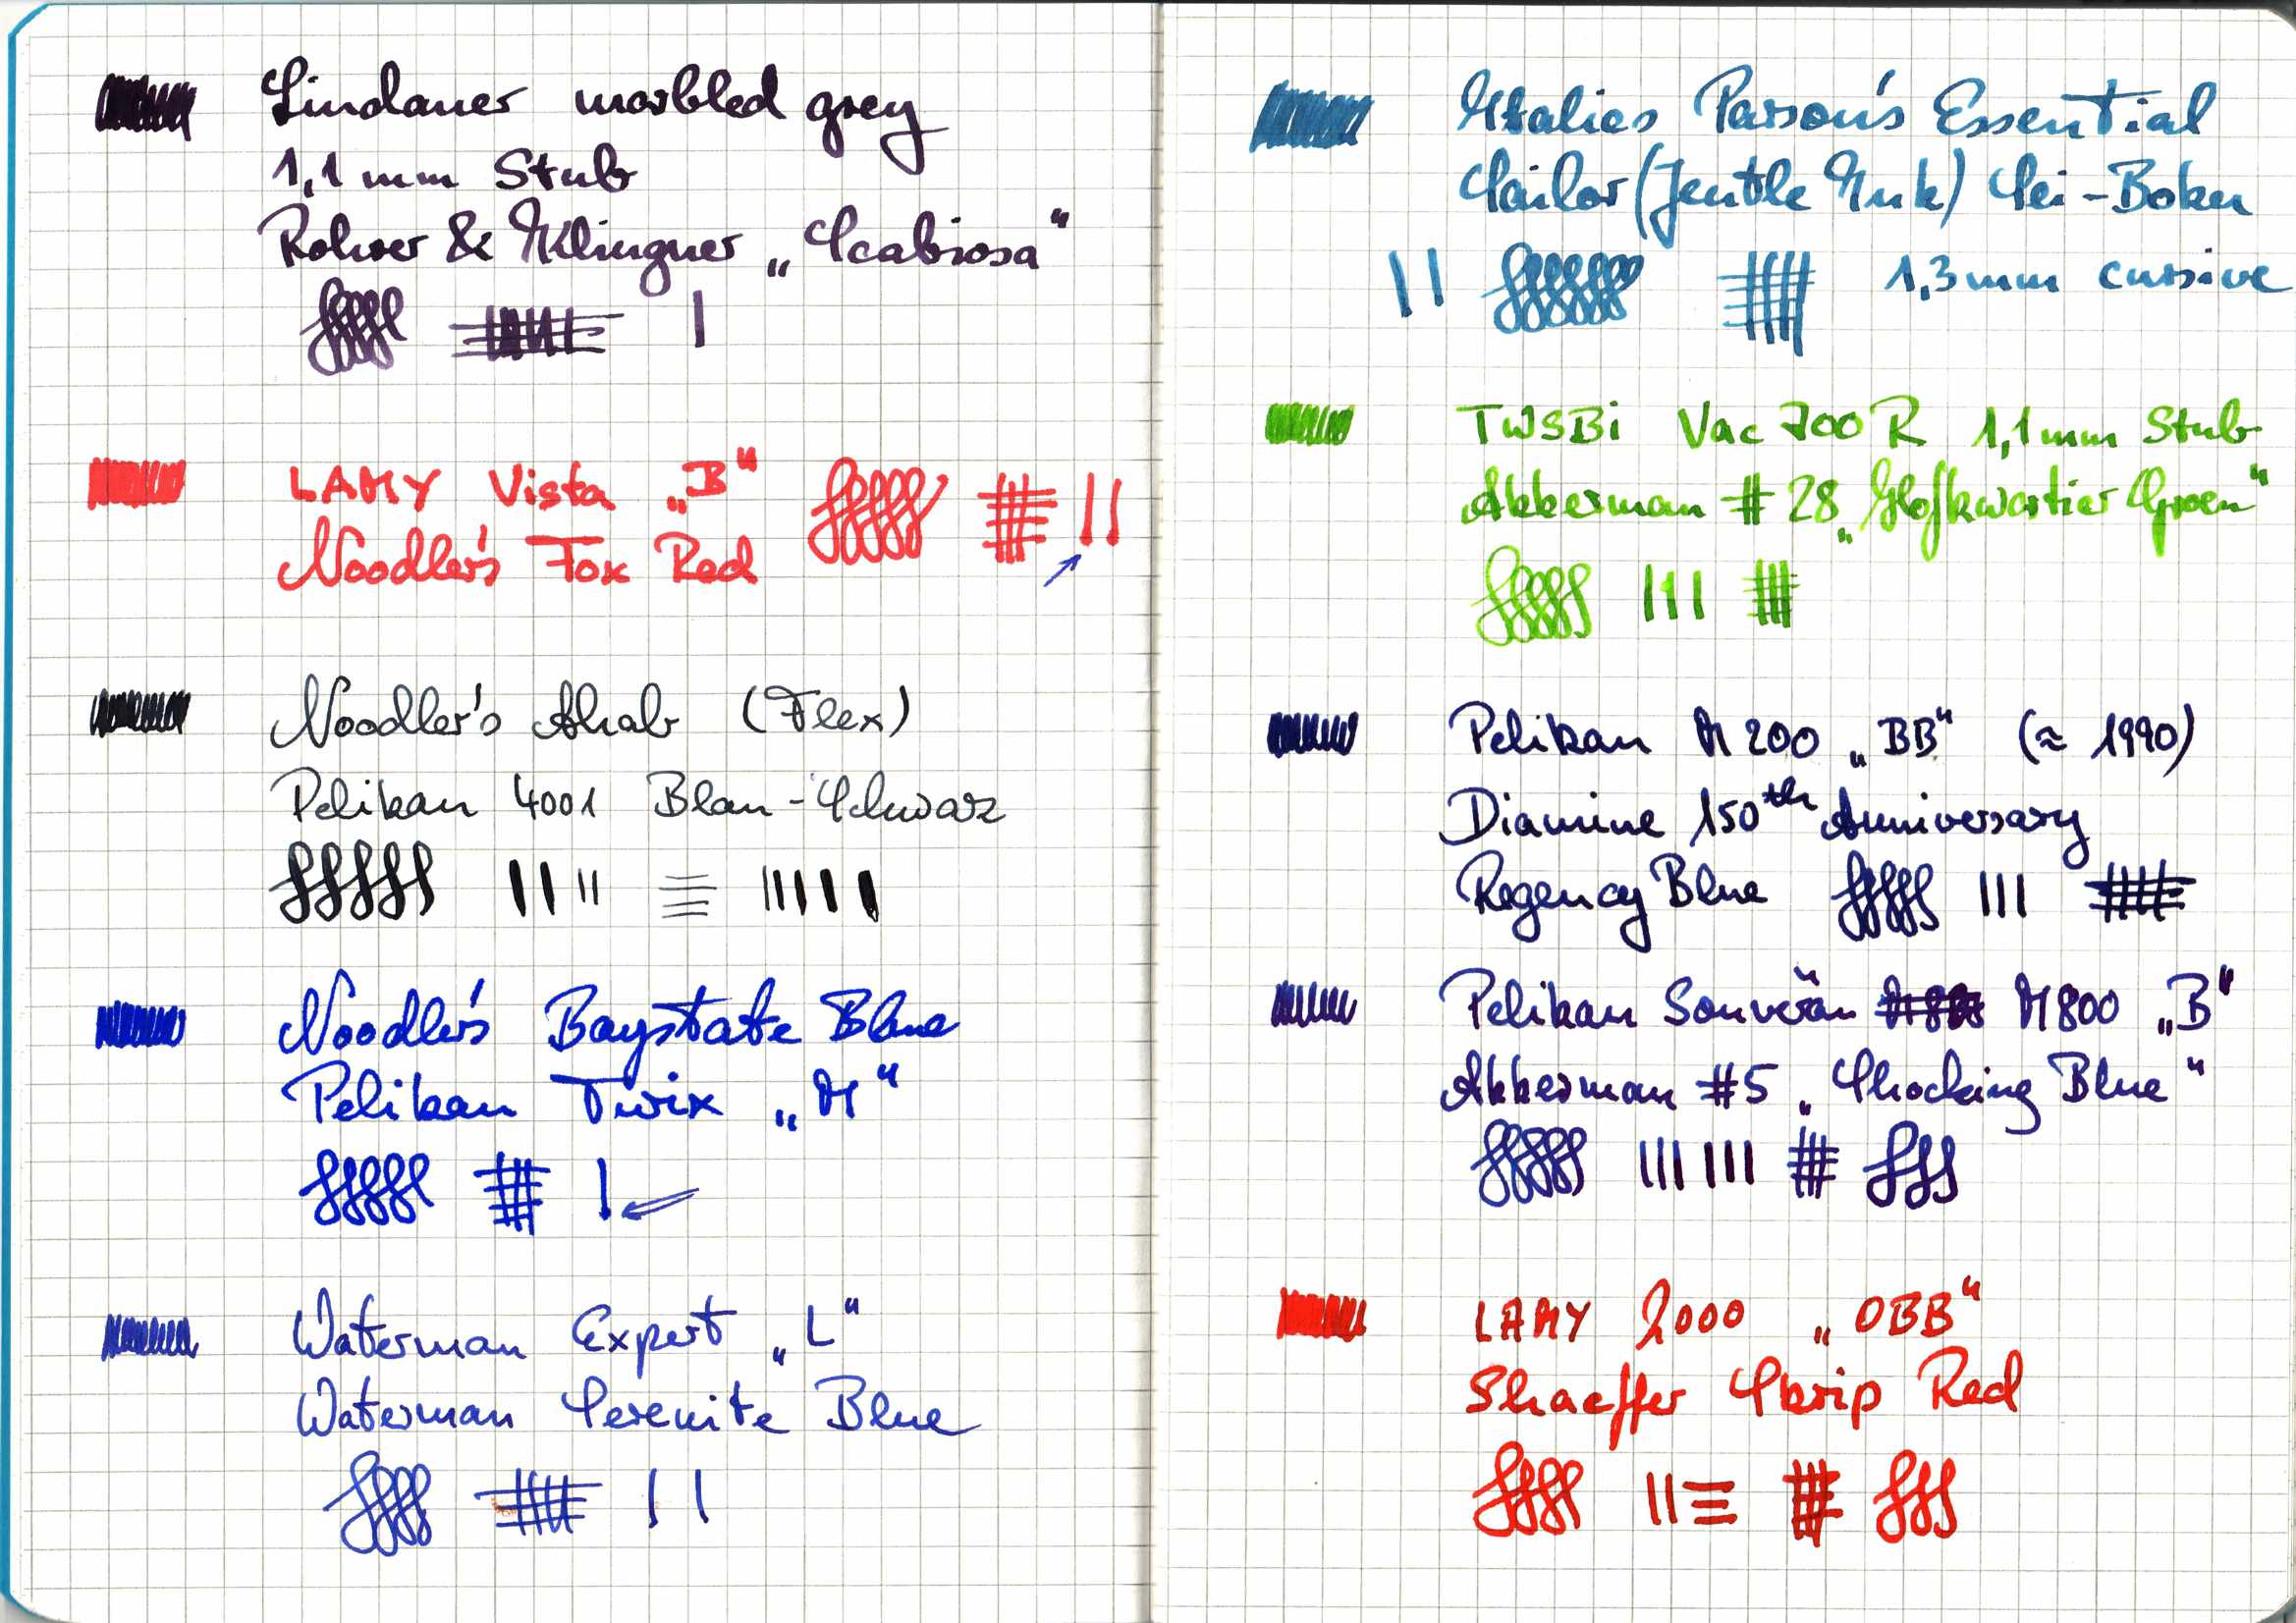 Lindauer marbled grey
1,1mm Stub
Rohrer & Klingner „Scabiosa“
LAMY Vista „B“
Noodler's Fox Red
Noodler's Ahab (Flex)
Pelikan 4001 Blau-Schwarz
Noodler's Baystate Blue
Pelikan Twix „M“
Waterman Expert „L“
Waterman Serenite Blue
Italics Parson's Essential
Sailor (Jentle Ink) Sei-Boku
1,3mm cursive
TWSBi Vac 700 R 1,1mm Stub
Akkerman #28 „Hofkwartier Groen“
Pelikan M200 „BB“ (≈ 1990)
Diamine 150th Anniversary
Regency Blue
Pelikan Souverän M800 „B“
Akkerman #5 „Shocking Blue“
LAMY 2000 „OBB“
Shaeffer Skrip Red